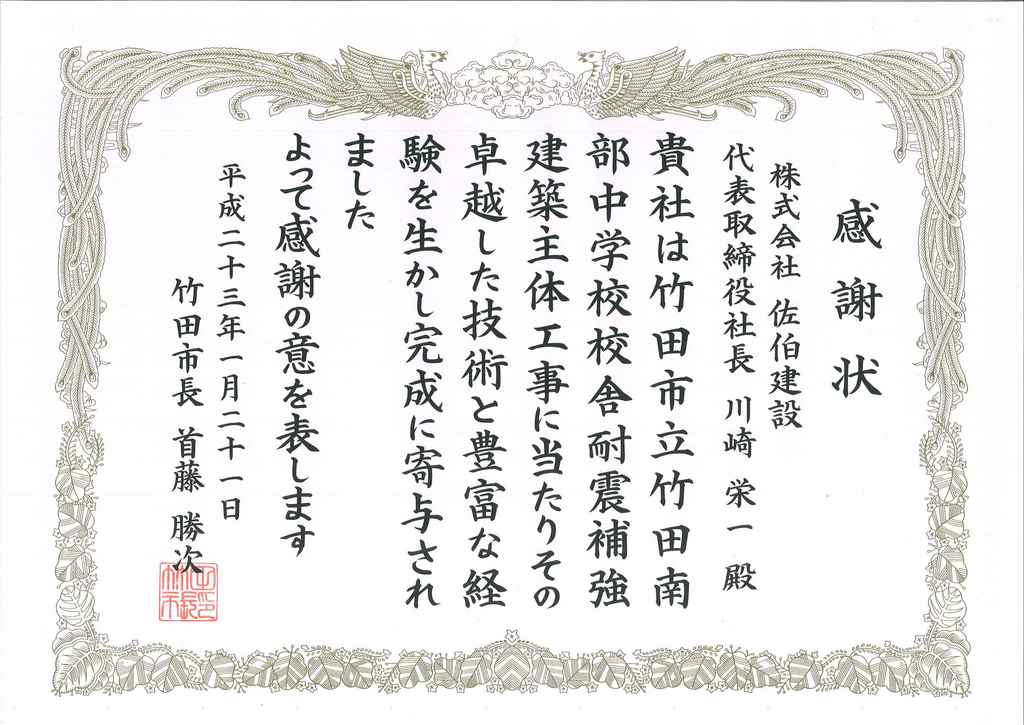 感謝状
株式会社 佐伯建設
代表取締役社長 川崎 栄一 殿
貴社は竹田市立竹田南
部中学校校舎耐震補強
建築主体工事に当たりその
卓越した技術と豊富な経
験を生かし完成に寄与され
ました
よって感謝の意を表します
平成二十三年一月二十一日
竹田市長 首藤 勝次